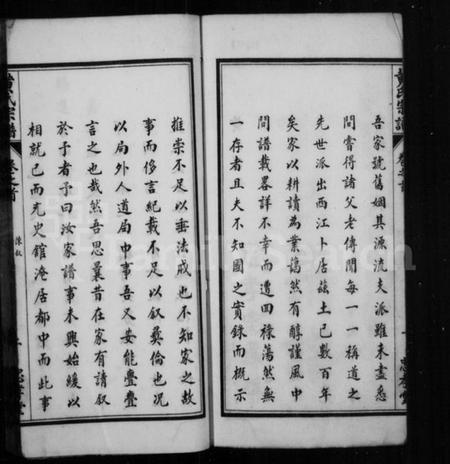 黄氏宗譜
卷之首
忠孝堂
吾家號舊姻其源流夫派雖未盡悉
問嘗得諸父老傳聞每一一稱道之
先世派出西江卜居兹土已數百年
矣家以耕讀為業藹然有醇謹風中
間譜載畧詳不幸而遭回祿蕩然無
一存者且夫不知國之實錄而概示
推崇不足以垂法戒也不知家之故
事而侈言紀載不足以叙彛倫也况
以局外人道局中事吾又安能亹亹
言之也哉然吾思曩昔在家有請叙
於予者予曰汝家譜事未興始緩以
相就已而充史館淹居都中而此事
黄氏宗譜
卷之首
陳叙
忠孝堂
FamilySearch